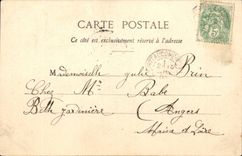 CARTE POSTALE
Ce côté est exclusivement réservé à l'adresse
Mademoiselle Julie Brin
Chez Mr Babe
Belle Jardinière
Angers
Maine et Loire